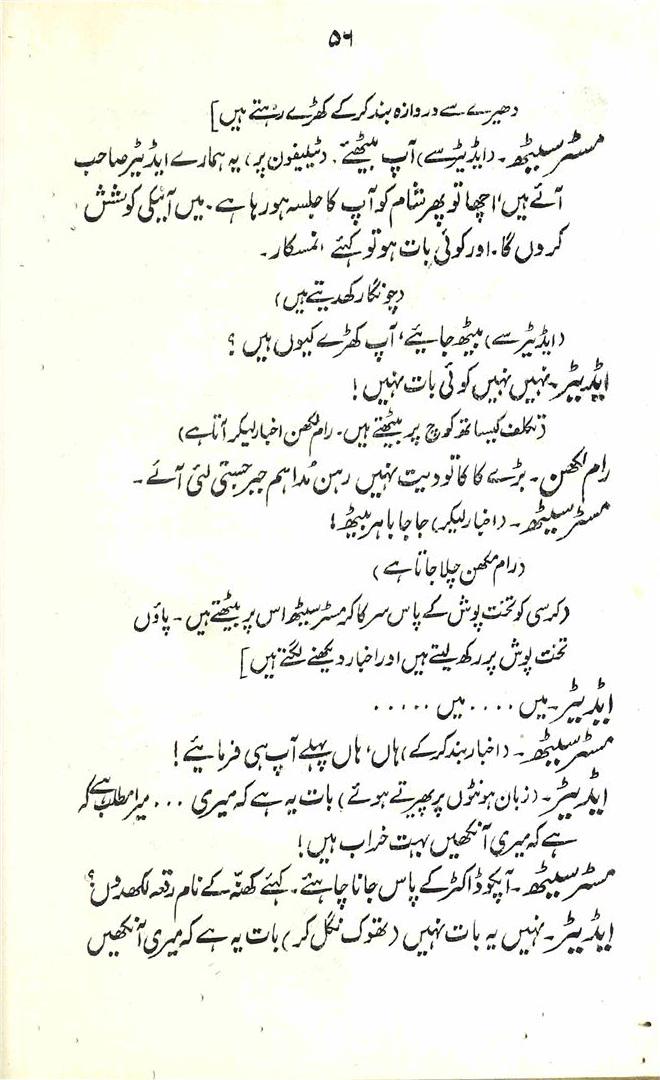 ۵۶
دھیرے سے دروازہ بند کرکے کھڑے رہتے ہیں]
مسٹر سیٹھ۔ (ایڈیٹر سے) آپ بیٹھئے، (ٹیلیفون پر) یہ ہمارے ایڈیٹر صاحب
آئے ہیں، اچھا تو پھر شام کو آپ کا جلسہ ہو رہا ہے۔ میں آنیکی کوشش
کروں گا۔ اور کوئی بات ہو تو کہئے، نمسکار۔
(چونگا رکھدیتے ہیں)
(ایڈیٹر سے) بیٹھ جایئے، آپ کھڑے کیوں ہیں؟
ایڈیٹر۔ نہیں نہیں کوئی بات نہیں!
(تکلف کیساتھ کوچ پر بیٹھتے ہیں۔ رام لکھن اخبار لیکر آتا ہے)
رام لکھن۔ بڑے کا کاتو دیت نہیں رہن مُدا ہم جبرجستی لئی آئے۔
مسٹر سیٹھ۔ (اخبار لیکر) جا جا باہر بیٹھ!
(رام مکھن چلا جاتا ہے)
(کرسی کو تخت پوش کے پاس سرکا کر مسٹر سیٹھ اس پر بیٹھتے ہیں۔ پاؤں
تخت پوش پر رکھ لیتے ہیں اور اخبار دیکھنے لگتے ہیں]
ایڈیٹر۔ میں .... میں .....
مسٹر سیٹھ۔ (اخبار بند کرکے) ہاں، ہاں پہلے آپ ہی فرمایئے!
ایڈیٹر۔ (زبان ہونٹوں پر پھیرتے ہوئے) بات یہ ہے کہ میری ... میرا مطلب ہے کہ
ہے کہ میری آنکھیں بہت خراب ہیں!
مسٹر سیٹھ۔ آپکو ڈاکٹر کے پاس جانا چاہئے۔ کہئے کھنّہ کے نام رقعہ لکھدوں؟
ایڈیٹر۔ نہیں یہ بات نہیں (تھوک نگل کر) بات یہ ہے کہ میری آنکھیں